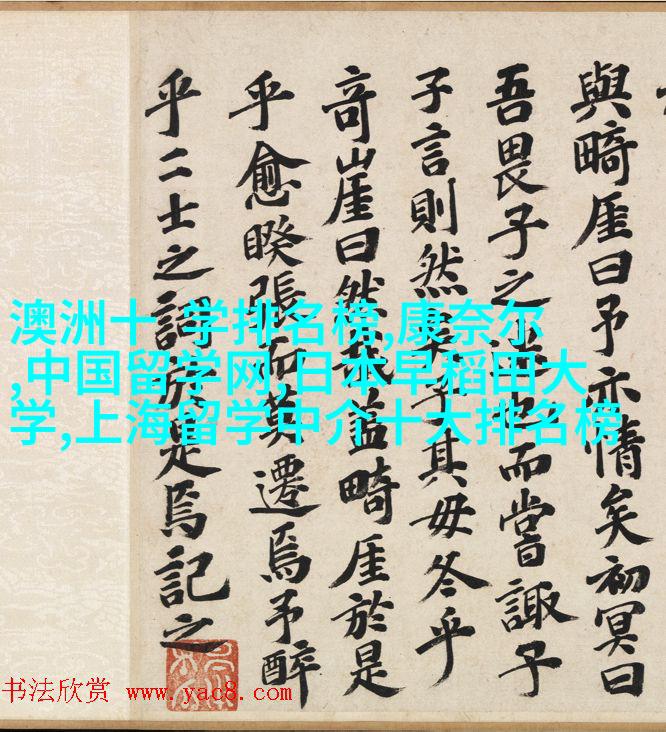 與畸厓曰予亦惰矣初冥曰
吾畏子之也而嘗諏子
子言則然子其毋冬乎
奇崖曰然蓋畸厓於是
乎愈睽張而莫遷焉予醉
乎二士之詞於是焉記之
澳洲十 学排名榜,康奈尔
,中国留学网,日本早稻田大
学,上海留学中介十大排名榜
书法欣赏 www.yac8.com